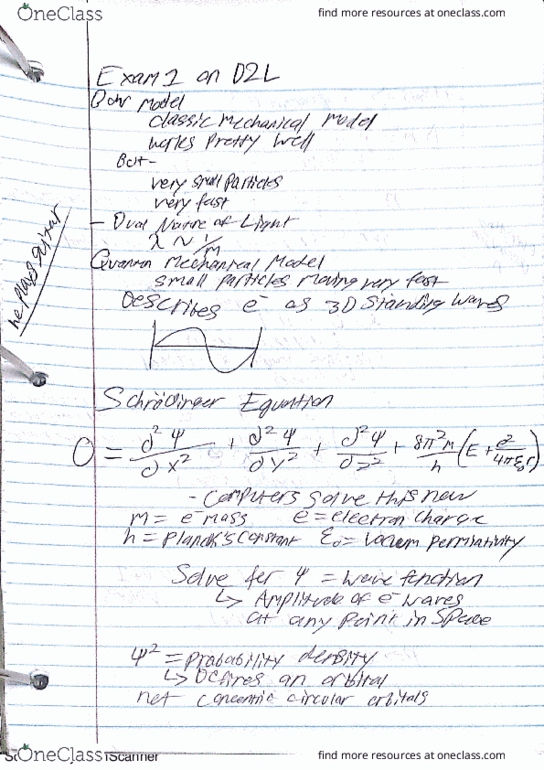 OneClass
find more resources at oneclass.com
Exam 1 on D2L
Bohr Model
Classic Mechanical Model
works Pretty well
But-
very small Particles
very fast
- Dual Nature of Light
λ ~ 1/m
Quantum Mechanical Model
small particles moving very fast
he plays guitar
Describes e⁻ as 3D Standing Waves
Schrödinger Equation
0 = ∂²Ψ/∂x² + ∂²Ψ/∂y² + ∂²Ψ/∂z² + 8π²m/h (E + e²/4πε₀r)
- Computers solve this now
m = e⁻ mass e = electron charge
h = Planck's constant ε₀ = Vacum permitivity
Solve for Ψ = wave function
↳ Amplitude of e⁻ waves
at any point in space
Ψ² = probability density
↳ Defines an orbital
not concentric circular orbitals
OneClass
Scanner
find more resources at oneclass.com